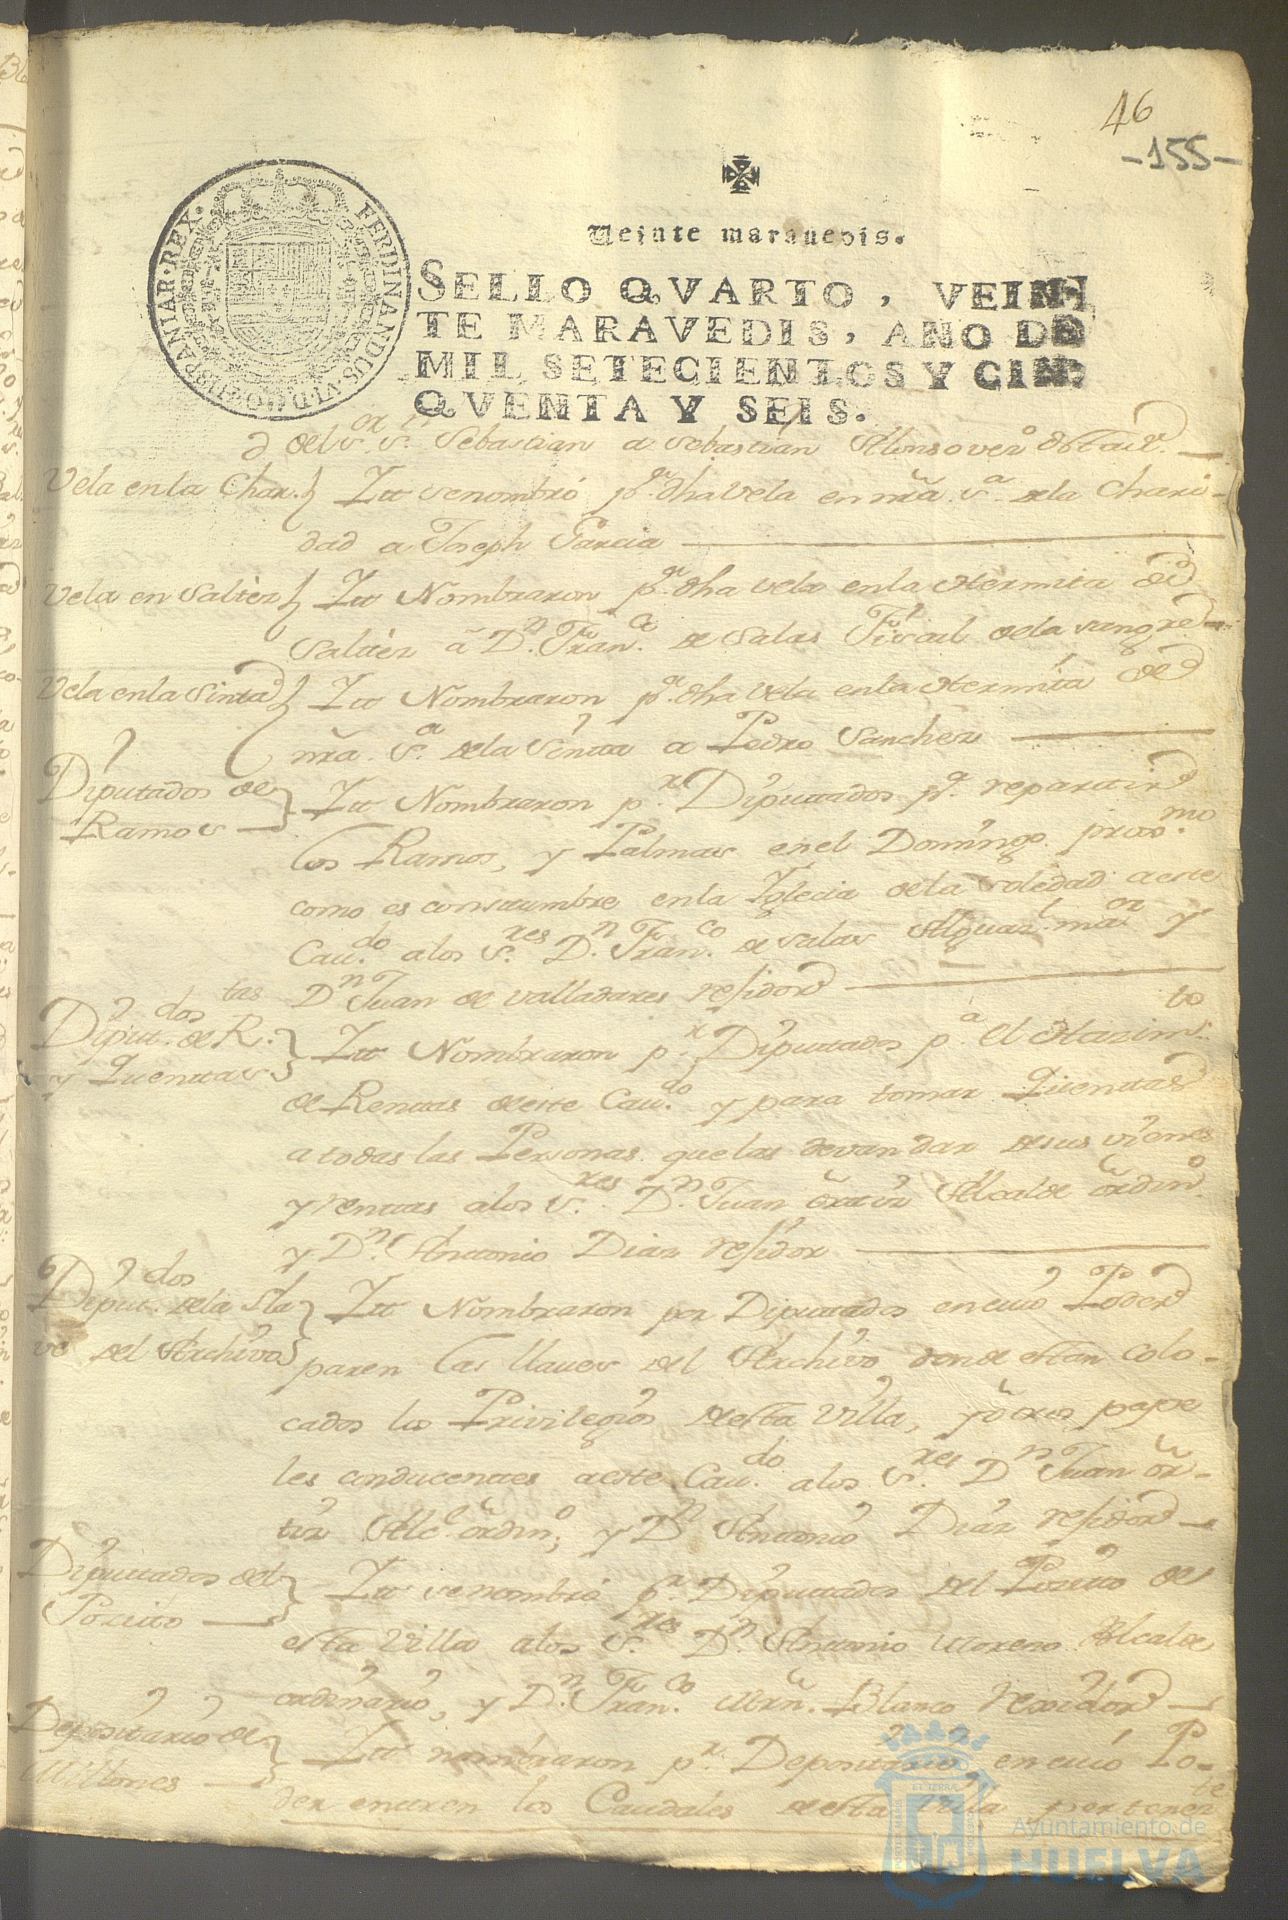 46
-155-
FERDINANDUS·VI·D·G·HISPANIAR·REX·
Veinte marauedis.
SELLO QVARTO, VEIN-
TE MARAVEDIS, AÑO DE
MIL SETECIENTOS Y CIN-
QVENTA Y SEIS.
Sebastian a Sebastián Alonso
Vela en la Char. Itt se nombró pª. dha Vela en nrã Sª. de la Chari-
dad a Joseph Garcia
Vela en Saltés Itt Nombraron pª. dha vela en la Hermita de
Saltés â Dⁿ. Franᶜᵒ. de Salas Fiscal de la Sangre
Vela en la Sinta Itt Nombraron pª. dha Vela en la Hermita de
nrã. Sª. de la Sinta a Pedro Sanchez
Diputados de
Ramos
Itt Nombraron pʳ. Diputados pª. repartir
los Ramos, y Palmas en el Domingo proxᵐᵒ
como es constumbre en la Iglecia de la Soledad a este
Cauᵈᵒ. a los Sʳᵉˢ. Dⁿ. Franᶜᵒ. de Salas Alguazˡ. maᵒʳ y
Dⁿ Juan de Valladares rexidor
Diputᵈᵒˢ. de Rᵗᵃˢ.
y Quentas
Itt Nombraron pʳ. Diputados pª. el Hazimᵗᵒ.
de Rentas de este Cauᵈᵒ. y para tomar Quentas
a todas las Personas que las devan dar de sus vienes
y rentas a los Sʳᵉˢ. Dⁿ. Juan Õrtiz Alcalde õrdinᵒ.
y Dⁿ. Antonio Diaz rexidor
Diputᵈᵒˢ. de la Lla
ve del Archivo
Itt Nombraron por Diputados en cuio Poder
paren las llaues del Archivo donde estan colo-
cados los Privilegios de esta Villa, y õtros pape
les conducentes a este Cauᵈᵒ. a los Sʳᵉˢ Dⁿ Juan õr-
tiz Alcᵉ õrdinᵒ, y Dⁿ Antonio Diaz rexidor
Diputados del
Pocito
Itt se nombró pʳ. Diputados del Pocito de
esta Villa a los Sʳᵉˢ. Dⁿ. Antonio Moreno Alcalde
ordinario, y Dⁿ. Franᶜᵒ. Mrñ. Blanco Rexidor
Depositario de
Millones
Itt nombraron pʳ. Depositario, en cuio Po-
der entren los Caudales de esta Villa pertenenᵗᵉ
ET TERRAE
Ayuntamiento de
HUELVA